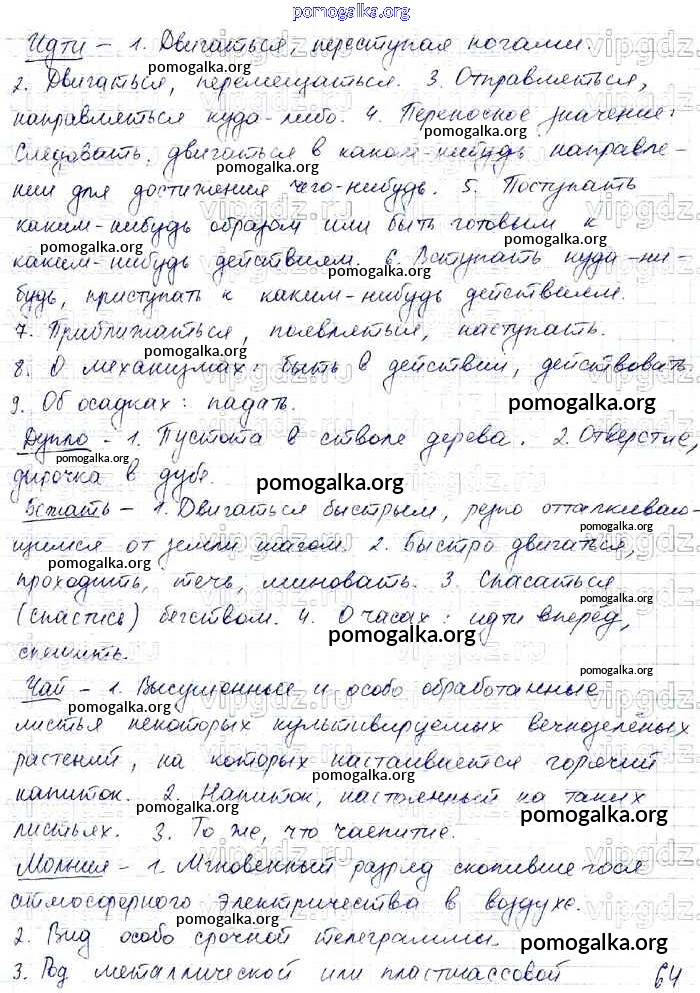 pomogalka.org
Идти – 1. Двигаться, переступая ногами.
2. Двигаться, перемещаться. 3. Отправляться,
направляться куда-либо. 4. Переносное значение:
Следовать, двигаться в каком-нибудь направле-
нии для достижения чего-нибудь. 5. Поступать
каким-нибудь образом или быть готовым к
каким-нибудь действием. 6. Вступать куда-ни-
будь, приступать к каким-нибудь действием.
7. Приближаться, появляться, наступать.
8. О механизмах: быть в действии, действовать
9. Об осадках: падать.
Дупло – 1. Пустота в стволе дерева. 2. Отверстие,
дырочка в зубе.
Бежать – 1. Двигаться быстрым, резко отталкиваю-
щимся от земли шагом. 2. Быстро двигаться,
проходить, течь, миновать. 3. Спасаться
(спастись) бегством. 4. О часах: идти вперёд,
спешить.
Чай – 1. Высушенные и особо обработанные
листья некоторых культивируемых вечнозелёных
растений, на которых настаивается горячий
напиток. 2. Напиток, настоянный на таких
листьях. 3. То же, что чаепитие.
Молния – 1. Мгновенный разряд скопившегося
атмосферного электричества в воздухе.
2. Вид особо срочной телеграммы.
3. Род металлической или пластмассовой
64